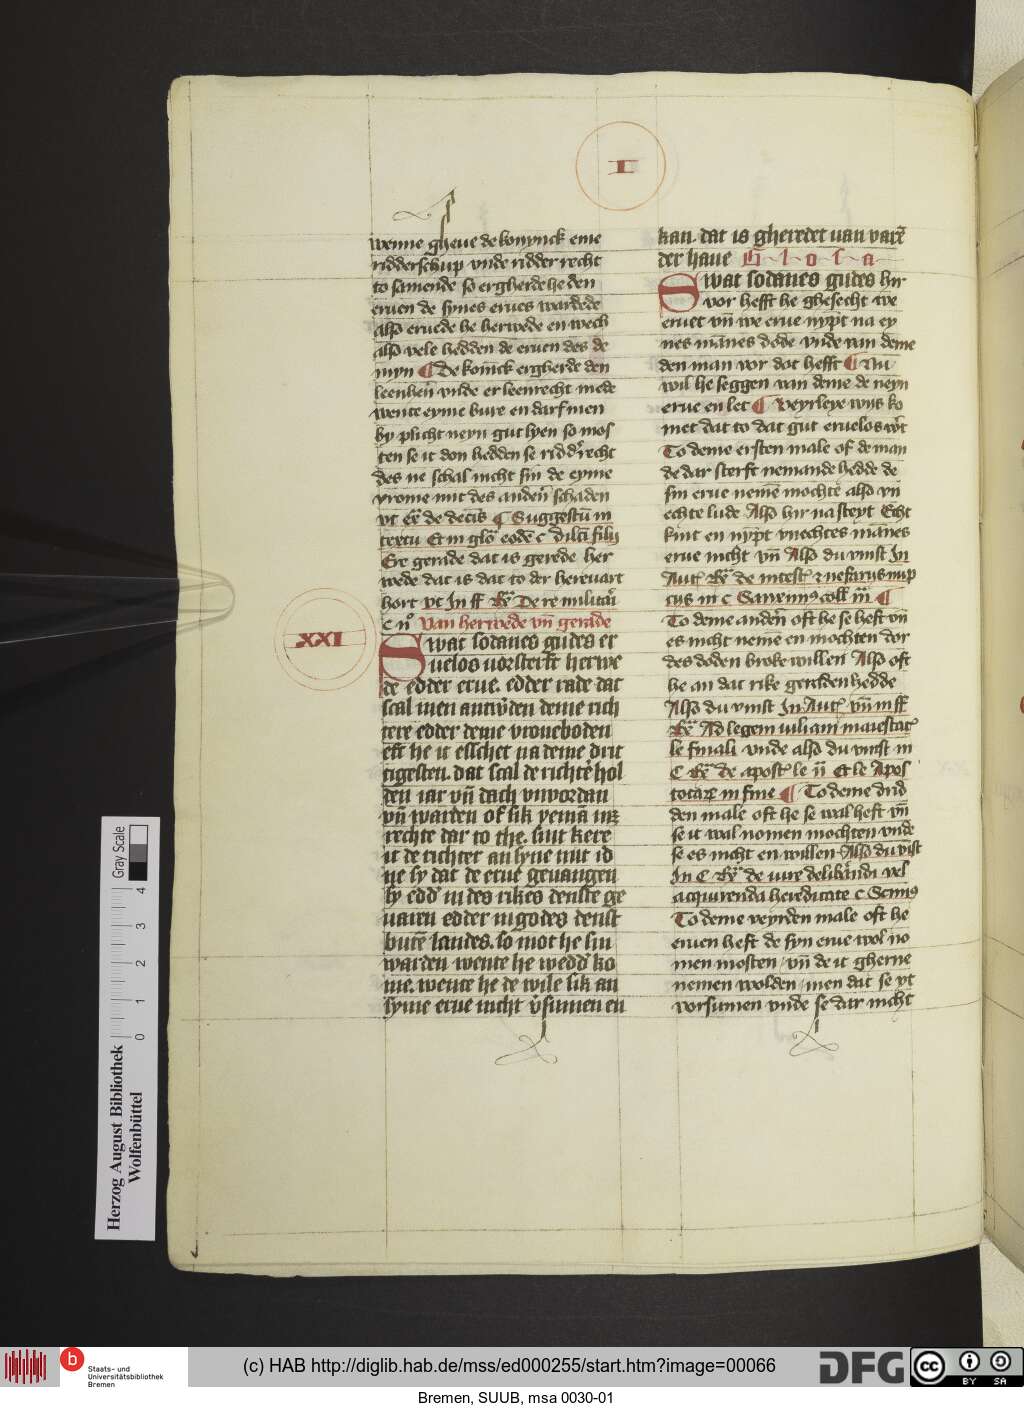 I
wenne gheue de konynck eme
ridderschup vnde ridder recht
to samende so ergherde he den
eruen de synes erues wardede
also eruede he herwede en wech
also vele hedden de eruen des de
myn ¶ De konick ergherde den
leenhēn vnde er leenrecht mede
wente eyme bure en darf men
by plicht neyn gut lyen so mos
ten se it don hedden se ridd'recht
des ne schal nicht sin de eyme
vrome mit des anden schaden
vt de decis ¶ Suggestū in
textu Et in glo eodē c dilcī filij
Ere gerade dat is gerede her
wede dat is dat to der hereuart
hort vt In ff De re militari
van herwede vn gerade
XXI
Swat sodanes gudes er
uelos vorsterft herwe
de edder erue. edder rade dat
scal men antwden deme rich
tere edder deme vroneboden
eft he it esschet na deme drit
tigesten. dat scal de richter hol
den iar vn dach vnvordan
vn warden of sik yemā mz
rechte dar to the. sint kere
it de richter an syne nut id
ne sy dat de erue geuangen
sy edd' in des rikes denste ge
uaren edder in godes denst
buten landes. so mot he sin
warden wente he wedd' ko
me. wente he de wile sik an
syme erue nicht v'sumen en
kan. dat is gheredet van varē
der haue Glosa
Swat sodanes gudes hir
vor hefft he ghesecht we
eruet vn we erue nypt na ey
nes mānes dode vnde van deme
den man vor dot hefft ¶ Nu
wil he seggen van deme de neyn
erue en let ¶ Veyrleye wys ko
met dat to dat gut erueloswt
To deme ersten male of de man
de dar sterft nemande hedde de
sin erue nemē mochte also vn
echte lude Also hir na steyt Echt
kint en nypt vnechtes mānes
erue nicht vn Also du vinst In
To deme anden oft he se heft vn
es nicht nemē en mochten dor
des doden broke willen Also oft
he an dat rike geraden hedde
Also du vinst In Aut vn in ff
Ad legem iuliam maiestat
le finali vnde also du vinst in
C de apost le ii Et le Apos
in fine ¶ To deme drid
den male oft he se wal heft vn
se it wal nomen mochten vnde
se es nicht en willen Also du vīst
In C de iure deliberandi vel
acquirenda hereditate c
To deme veyrden male oft he
eruen heft de syn erue wol no
men mosten / vn de it gherne
nemen wolden / men dat se yt
vorsumen vnde se dar nicht
Herzog August Bibliothek
Wolfenbüttel
0 1 2 3 4
Gray Scale
b
Staats- und
Universitätsbibliothek
Bremen
(c) HAB http://diglib.hab.de/mss/ed000255/start.htm?image=00066
DFG
cc
BY SA
Bremen, SUUB, msa 0030-01